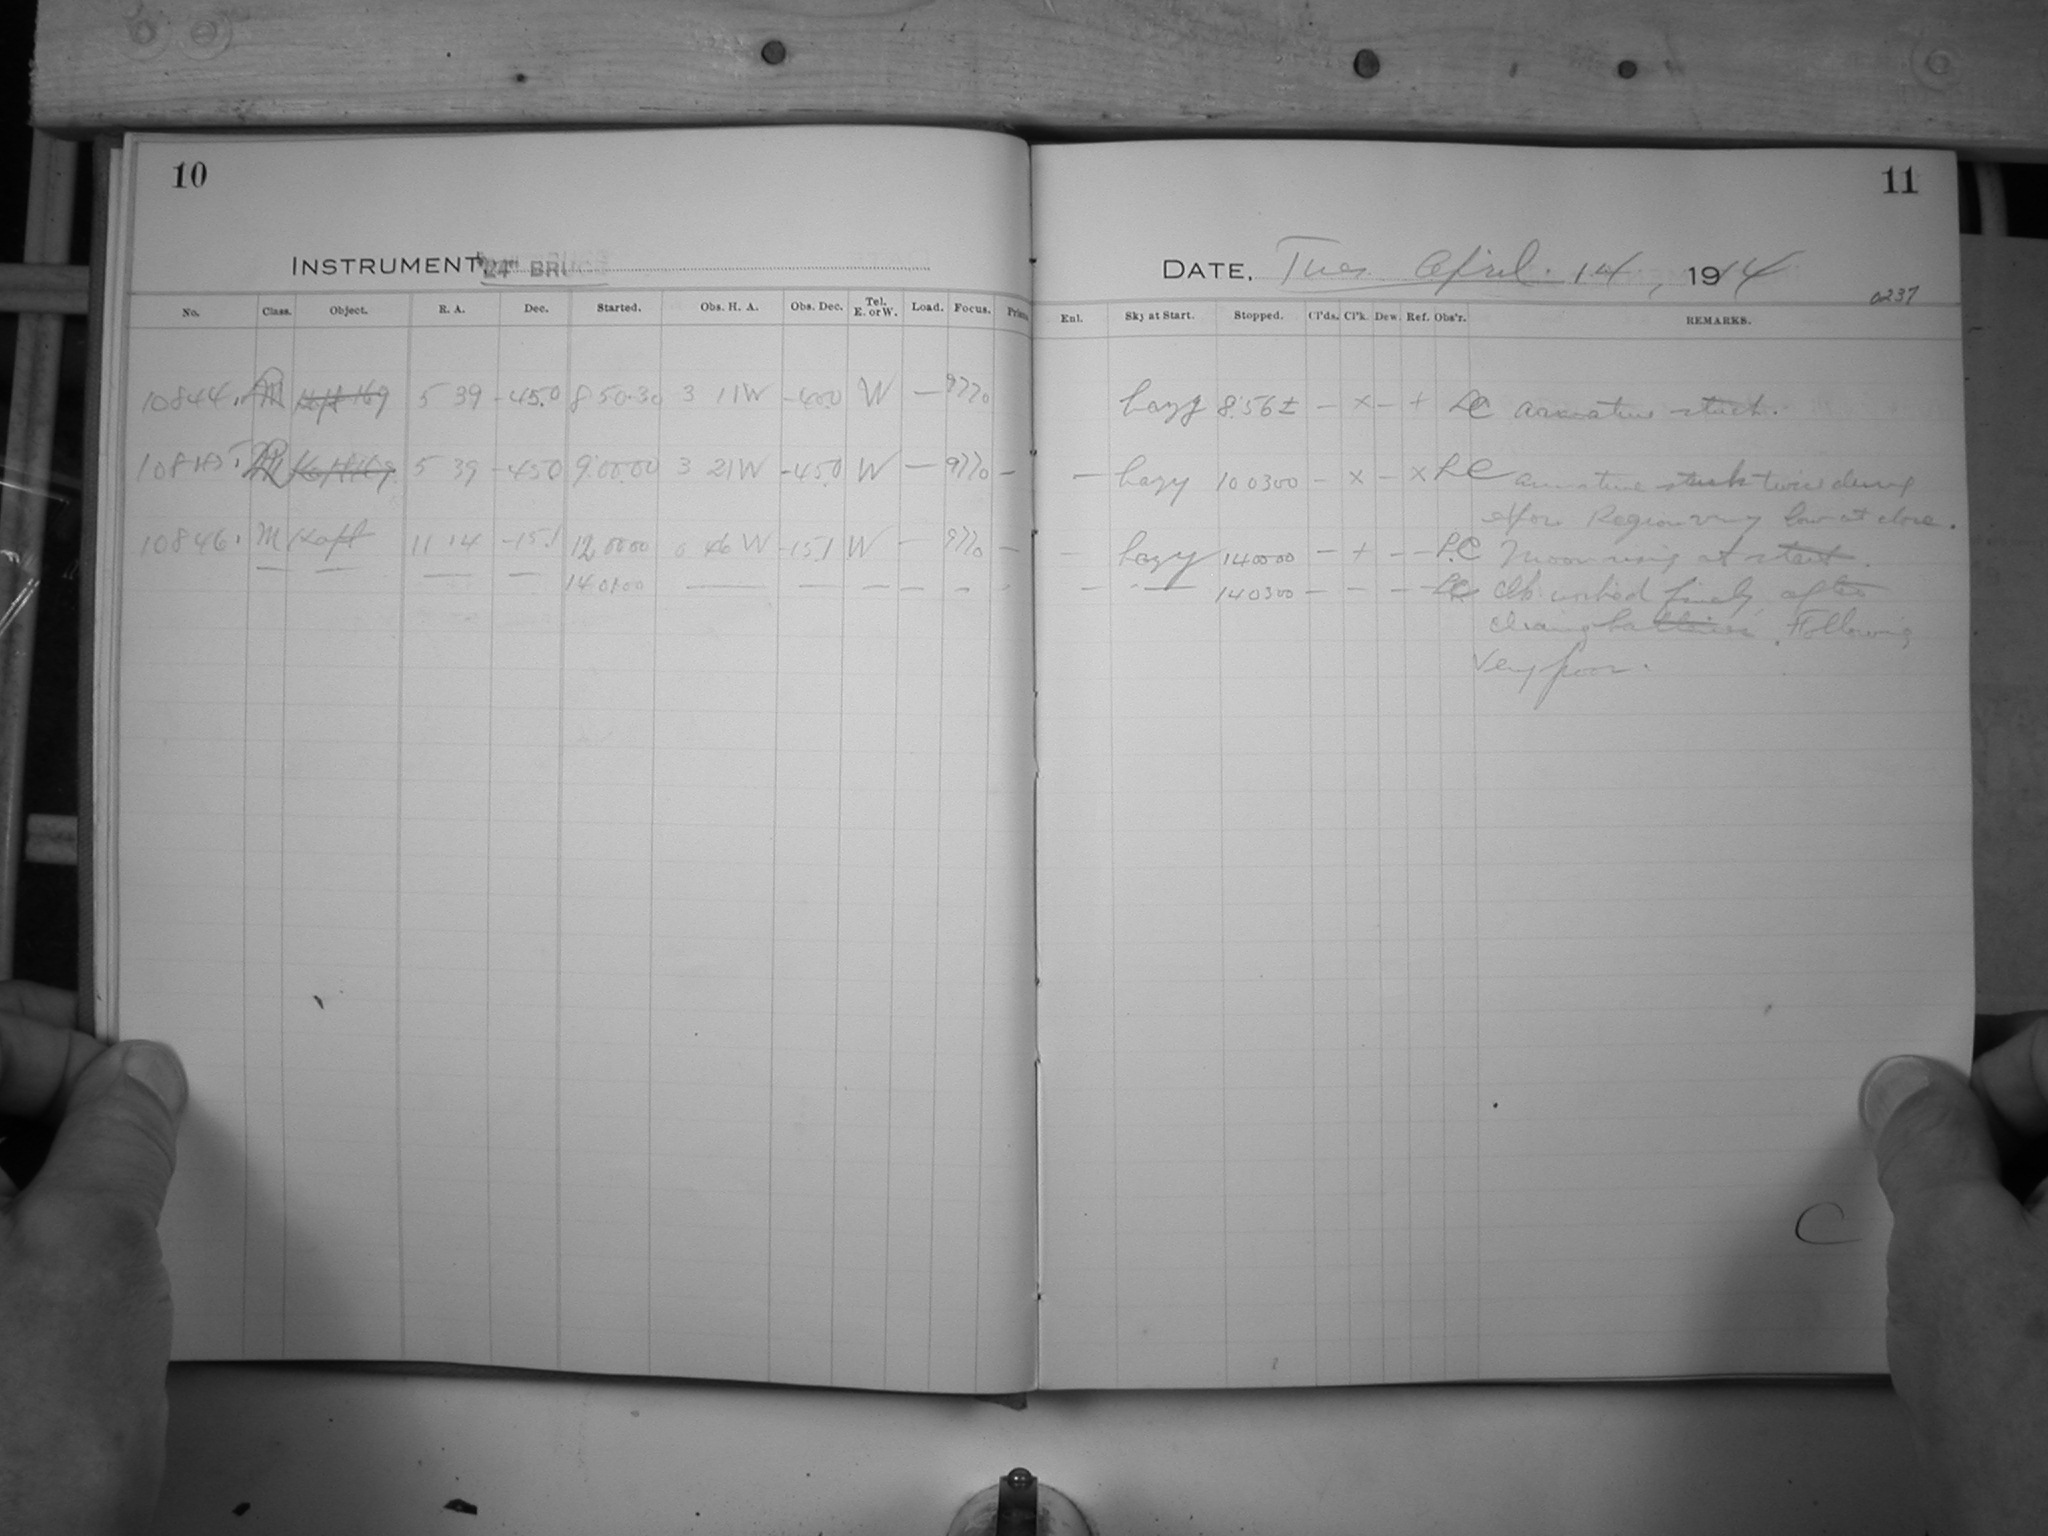 10
INSTRUMENT, 24" BRU
No. Class. Object. R. A. Dec. Started. Obs. H. A. Obs. Dec. Tel. E. or W. Load. Focus. Prism
10844. M 5 39 -45.0 8 50 30 3 11 W W — 9770
10845. 5 39 -45.0 9 00 00 3 21 W -45.0 W — 9770 —
10846. M Kapt 11 14 -15.1 12 00 00 0 46 W -15.1 W — 9770 —
— — — — 14 01 00 — — — — —
11
DATE, Tues April 14, 1914
0237
Enl. Sky at Start. Stopped. Cl'ds. Cl'k. Dew. Ref. Obs'r. REMARKS.
hazy 8.56± — × — + LC armature stuck.
— hazy 10 03 00 — × — × LC armature stuck twice during
expos Region very low at close.
— hazy 14 00 00 — + — — LC Moon rising at start.
— — 14 03 00 — — — — LC Clk worked finely after
batteries. Following
very poor.
C